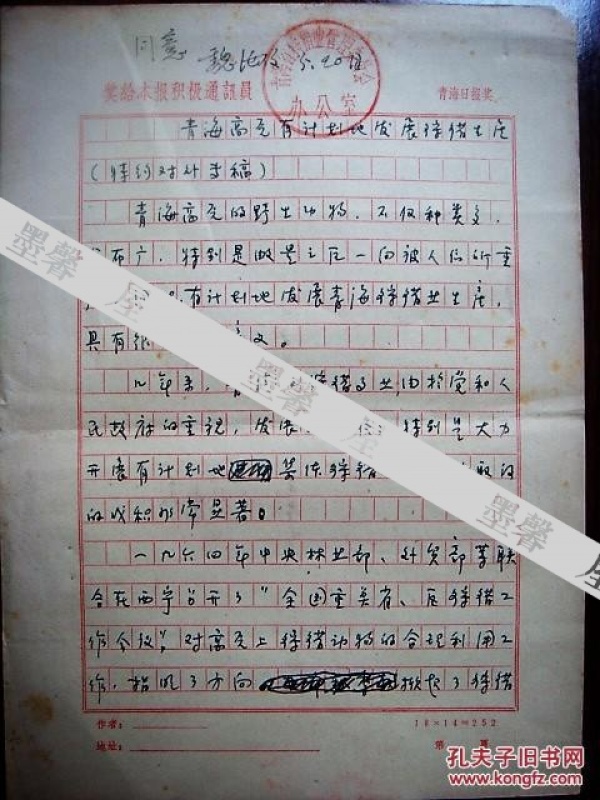 同意 5.20日
青海省
办公室
奖给本报积极通訊員
青海日报奖
青海高原有计划地发展狩猎生产
(特约对外专稿)
青海高原的野生动物,不仅种类多,
布广,特别是 一向被人们所重
有计划地发展青海狩猎业生产,
具有很 义。
几年来, 狩猎 业,由於党和人
民政府的重视,发展 特别是大力
开展有计划地 集体狩猎 取得
的成积非常显著。
一九六四年中央林业部、外贸部等联
合在西宁召开了"全国重点省、区狩猎工
作会议",对高原上狩猎动物的合理利用工
作,指明了方向 掀起了狩猎
作者:
地址:
18×14=252
第 頁
墨馨書屋
孔夫子旧书网
www.kongfz.com